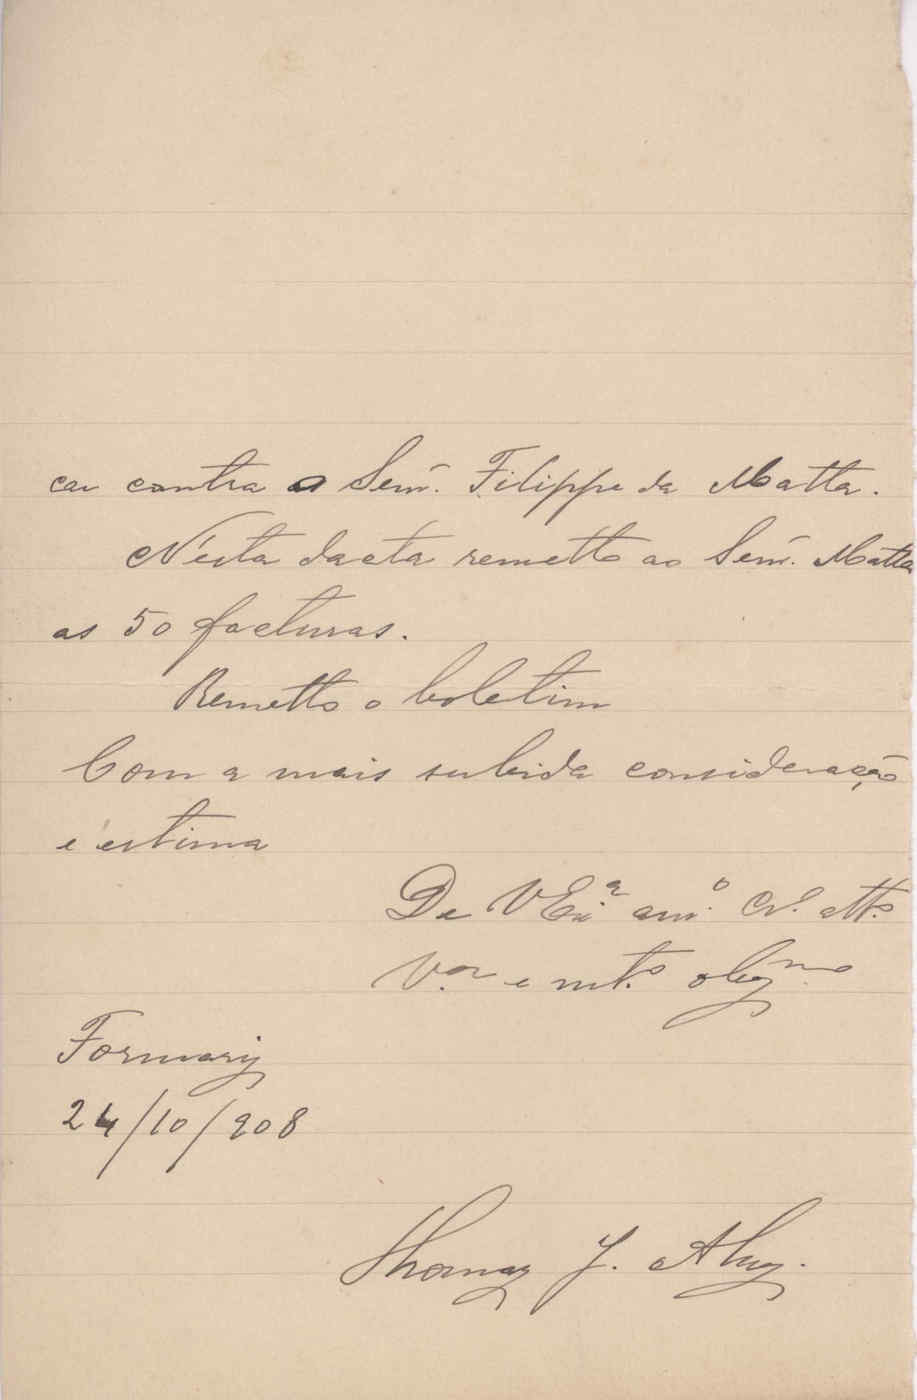 car contra o Senr. Filippe da Matta.
N'esta dacta remetto ao Senr. Matta
as 50 facturas.
Remetto o boletim
Com a mais subida consideração
e estima
De V Exª amº. Crº. attº.
Vor e mtº. obgmo
24/10/908
Thomaz J.